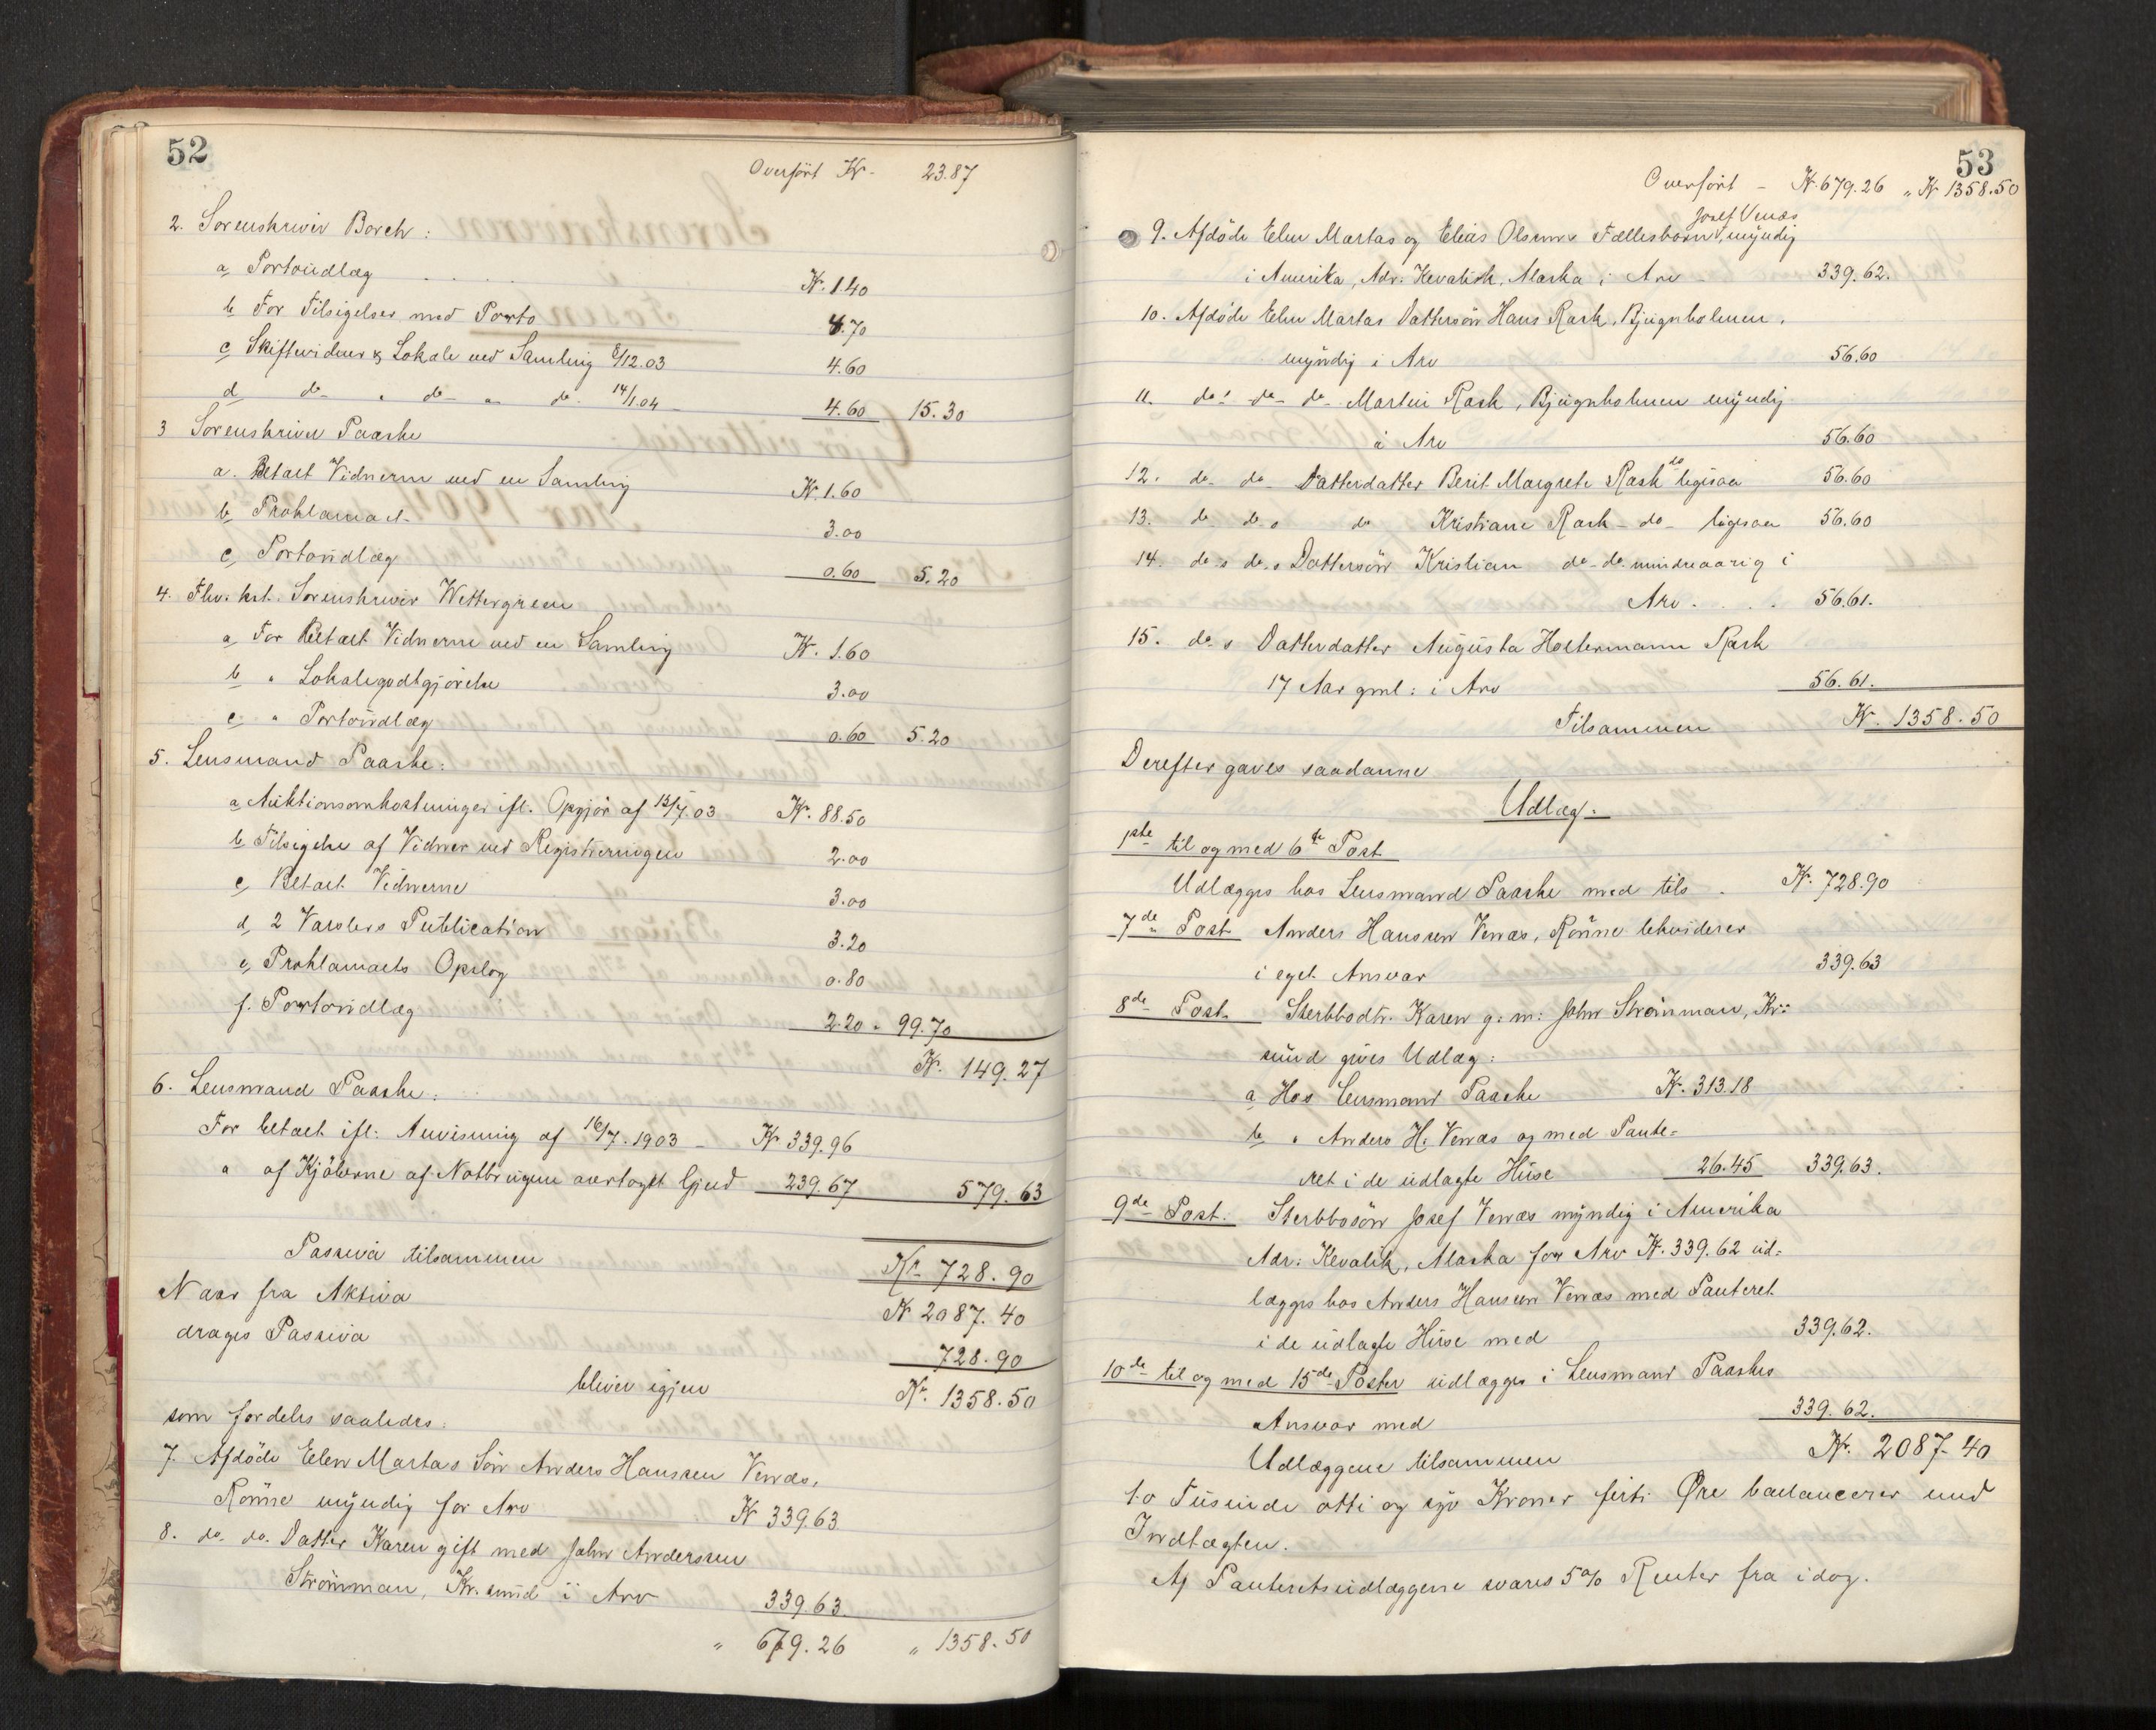 52
Overført Kr. 23.87
2. Sorenskriver Borch:
a, Portoudlæg . . . . Kr. 1.40
b For Tilsigelser med Porto 4.70
c Skiftevidner & Lokale ved Samling 8/12.03 4.60
d do " do " do 14/1.04 4.60 15.30
3 Sorenskriver Paaske
a. Betalt Vidnerne ved en Samling Kr. 1.60
b, Proklamaet 3.00
c, Portoudlæg 0.60 5.20
4. Fhv. kst. Sorenskriver Wettergreen
a, For Betalt Vidnerne ved en Samling Kr. 1.60
b " Lokalegodtgjörelse 3.00
c, " Portoudlæg 0.60 5.20
5. Lensmand Paaske:
a, Auktionsomkostninger ifl. Opgjör af 13/7.03 Kr. 88.50
b Tilsigelse af Vidner ved Registreringen 2.00
c, Betalt Vidnerne 3.00
d, 2 Varslers Publication 3.20
e, Proklamaets Opslag 0.80
f. Portoudlæg 2.20 " 99.70
Kr. 149.27
6. Lensmand Paaske:
For betalt ifl. Anvisning af 16/7.1903 – Kr. 339.96
" af Kjöberne af Notbrugene overtaget Gjeld 239.67 579.63
Passiva tilsammen Kr. 728.90
Naar fra Aktiva Kr 2087.40
drages Passiva 728.90
bliver igjen Kr. 1358.50
som fordeles saaledes:
7. Afdöde Elen Martas Sön Anders Hanssen Venæs,
Rönne myndig for Arv Kr 339.63
8. do. do. Datter Karen gift med John Anderssen
Strömman, Kr.sund i Arv 339.63.
" 679.26 " 1358.50
53
Overført – Kr. 679.26 " Kr 1358.50
Josef Venæs
9. Afdöde Elen Martas og Elias Olsens Fællesbarn, myndig
i Amerika, Adr. Kevalik, Alaska i Arv 339.62.
10. Afdöde Elen Martas Dattersön Hans Rask, Bjugnholmen,
myndig i Arv 56.60
11. do: do do Martin Rask, Bjugnholmen myndig
i Arv 56.60
12. do do Datterdatter Berit Margrete Rask do ligesaa 56.60
13. do do s do Kristiane Rask – do – ligesaa 56.60
14. do s do s Dattersön Kristian do do mindreaarig i
Arv . . . . 56.61.
15. do s Datterdatter Augusta Holtermann Rask
17 Aar gml: i Arv 56.61.
Tilsammen Kr. 1358.50
Derefter gaves saadanne
Udlæg.
1ste til og med 6te Post
Udlægges hos Lensmand Paaske med tils . Kr. 728.90
7de Post Anders Hanssen Venæs, Rönne lekviderer
i eget Ansvar 339.63
8de Post. Sterbbodtr. Karen g. m: John Strömman, Kr:
sund gives Udlæg:
a Hos Lensmand Paaske Kr. 313.18
b, " Anders H. Venæs og med Pante=
ret i de udlagte Huse 26.45 339.63.
9de Post. Sterbbosön Josef Venæs myndig i Amerika
Adr: Kevalik, Alaska for Arv Kr. 339.62 ud=
lægges hos Anders Hanssen Venæs med Panteret
i de udlagte Huse med 339.62.
10de til og med 15de Poster udlægges i Lensmand Paaskes
Ansvar med 339.62.
Udlæggene tilsammen Kr. 2087.40
to Tusinde otti og syv Kroner førti Øre balancerer med
Indtægten.
Af Panteretsudlæggene svares 5% Renter fra idag.